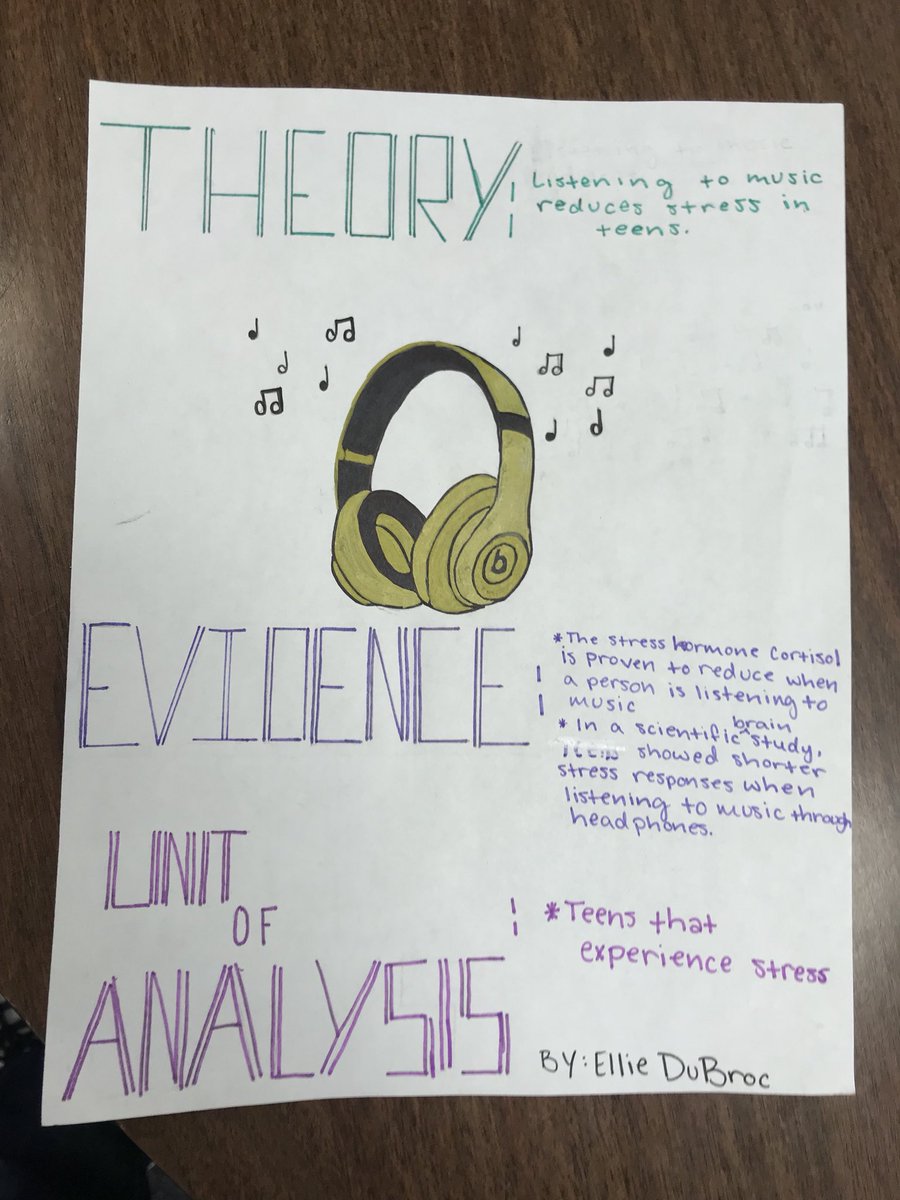 THEORY:
Listening to music
reduces stress in
teens.
b
EVIDENCE:
*The stress hormone cortisol
is proven to reduce when
a person is listening to
music
* In a scientific brain study,
teens showed shorter
stress responses when
listening to music through
headphones.
UNIT
OF
ANALYSIS:
*Teens that
experience stress
BY: Ellie DuBroc